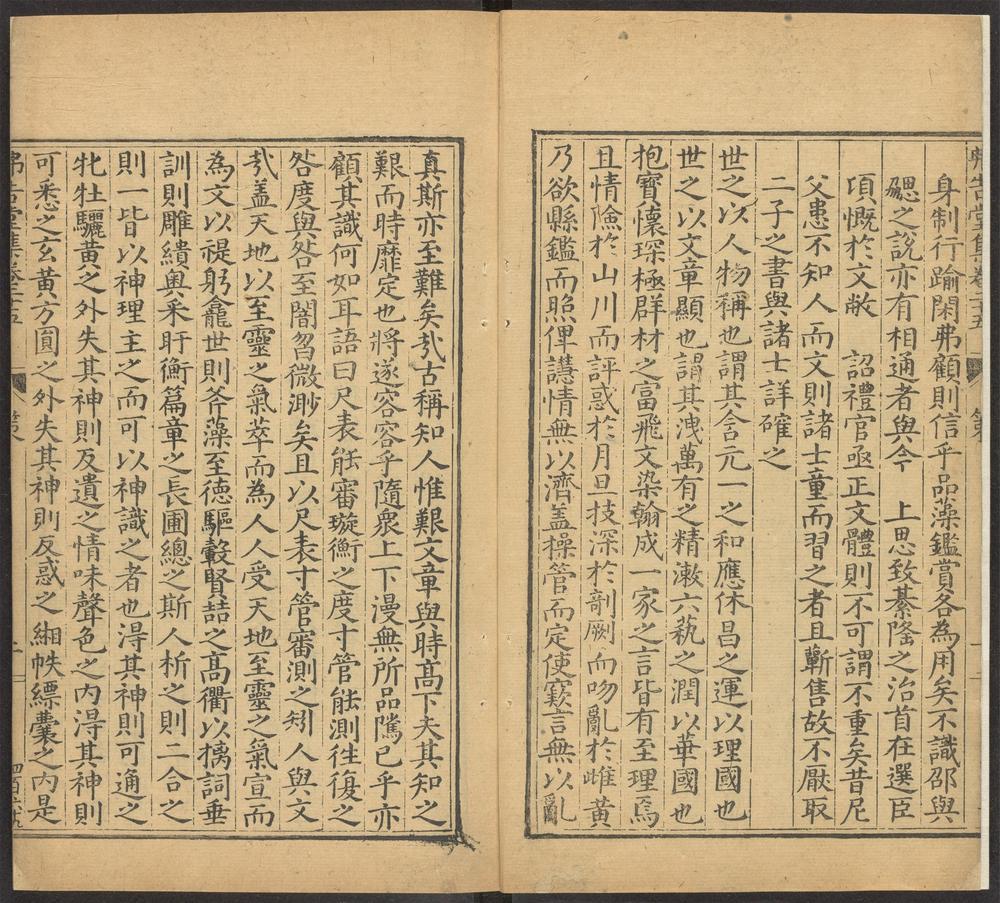 身制行踰閑弗顧則信乎品藻鑑賞各為用矣不識邵與
勰之說亦有相通者與今　上思致綦隆之治首在選臣
項慨於文敝　詔禮官亟正文體則不可謂不重矣昔尼
父患不知人而文則諸士童而習之者且蘄售故不厭取
二子之書與諸士詳確之
世之以人物稱也謂其含元一之和應休昌之運以理國也
世之以文章顯也謂其洩萬有之精漱六藝之潤以華國也
抱寶懷琛極群材之富飛文染翰成一家之言皆有至理焉
且情隂於山川而評惑於月旦技深於剞劂而吻亂於雌黃
乃欲縣鑑而照俾讆情無以濟蓋操管而定使窾言無以亂
真斯亦至難矣㢤古稱知人惟艱文章與時高下夫其知之
艱而時靡定也將遂容容乎隨衆上下漫無所品隲已乎亦
顧其識何如耳語曰尺表能審璇衡之度寸管能測徃復之
咎度與咎至闇曶微渺矣且以尺表寸管審測之矧人與文
㢤盖天地以至靈之氣萃而為人人受天地至靈之氣宣而
為文以禔躬龕世則斧藻至德驅轂賢喆之高衢以摛詞垂
訓則雕繢奧釆盱衡篇章之長圃總之斯人析之則二合之
則一皆以神理主之而可以神識之者也淂其神則可通之
牝牡驪黃之外失其神則反遺之情味聲色之內淂其神則
可悉之玄黃方圓之外失其神則反惑之緗帙縹囊之內是